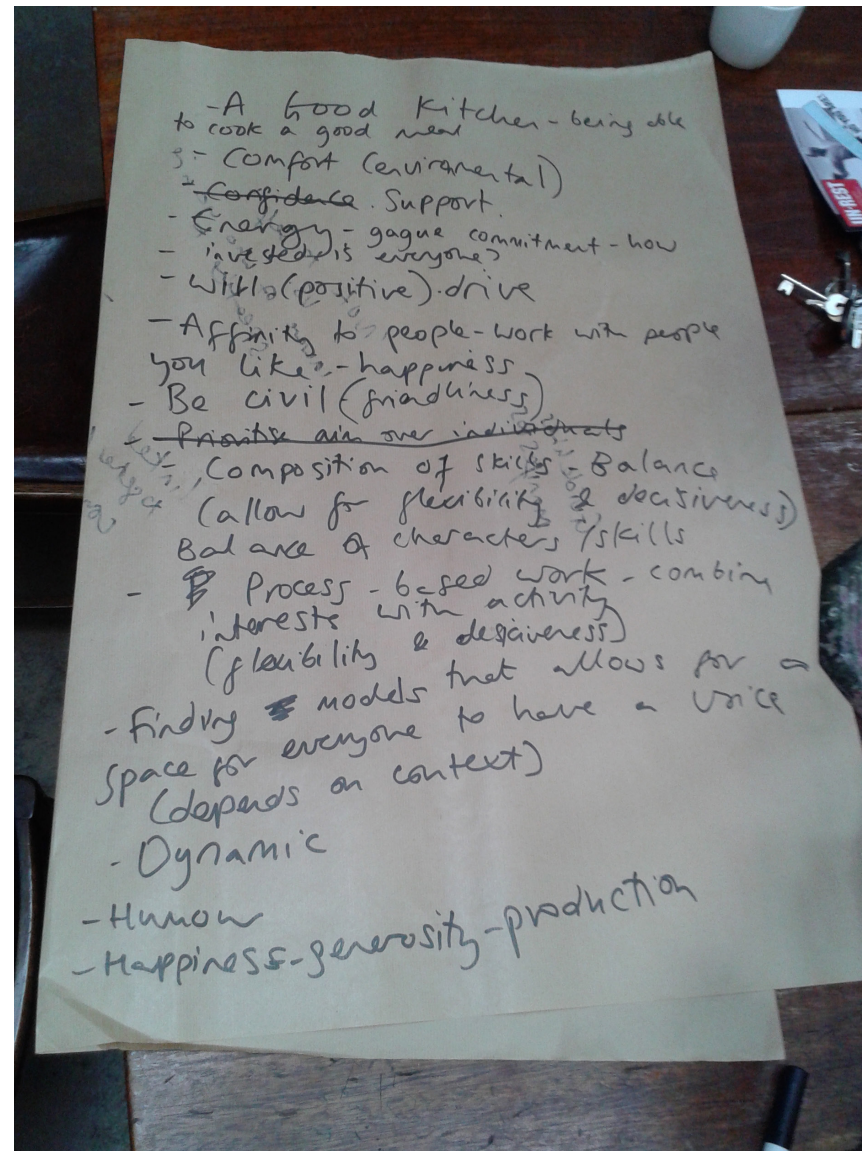 -A Good Kitchen - being able
to cook a good meal
- Comfort (enviromental)
- Confidence. Support.
- Energy - gague commitment - how
- invested is everyone?
- Will (positive) drive
- Affinity to people - work with people
you like - happiness
- Be civil (friendliness)
- Prioritise aim over individuals
- Composition of skills - Balance
(allow for flexibility & decisiveness)
Balance of characters /skills
- Process - based work - combine
interests with activity
(flexibility & desiciveness)
- Finding models that allows for a
space for everyone to have a voice
(depends on context)
- Dynamic
- Humour
- Happiness - generosity - production
UN-REST